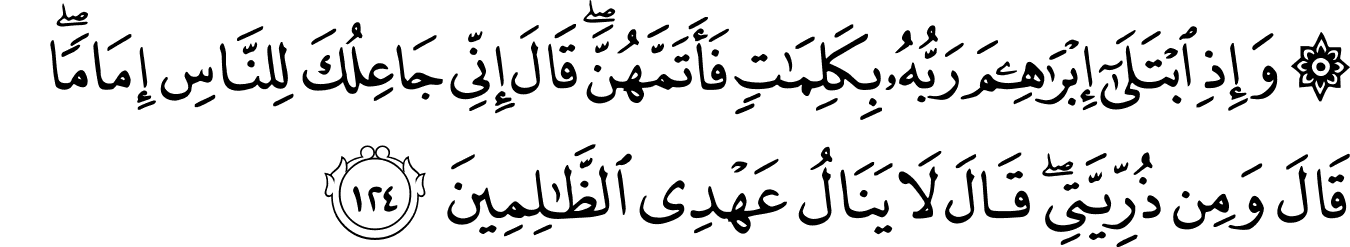 ۞ وَإِذِ ٱبْتَلَىٰٓ إِبْرَٰهِـۧمَ رَبُّهُۥ بِكَلِمَـٰتٍ فَأَتَمَّهُنَّ ۖ قَالَ إِنِّى جَاعِلُكَ لِلنَّاسِ إِمَامًا ۖ
قَالَ وَمِن ذُرِّيَّتِى ۖ قَالَ لَا يَنَالُ عَهْدِى ٱلظَّـٰلِمِينَ ١٢٤